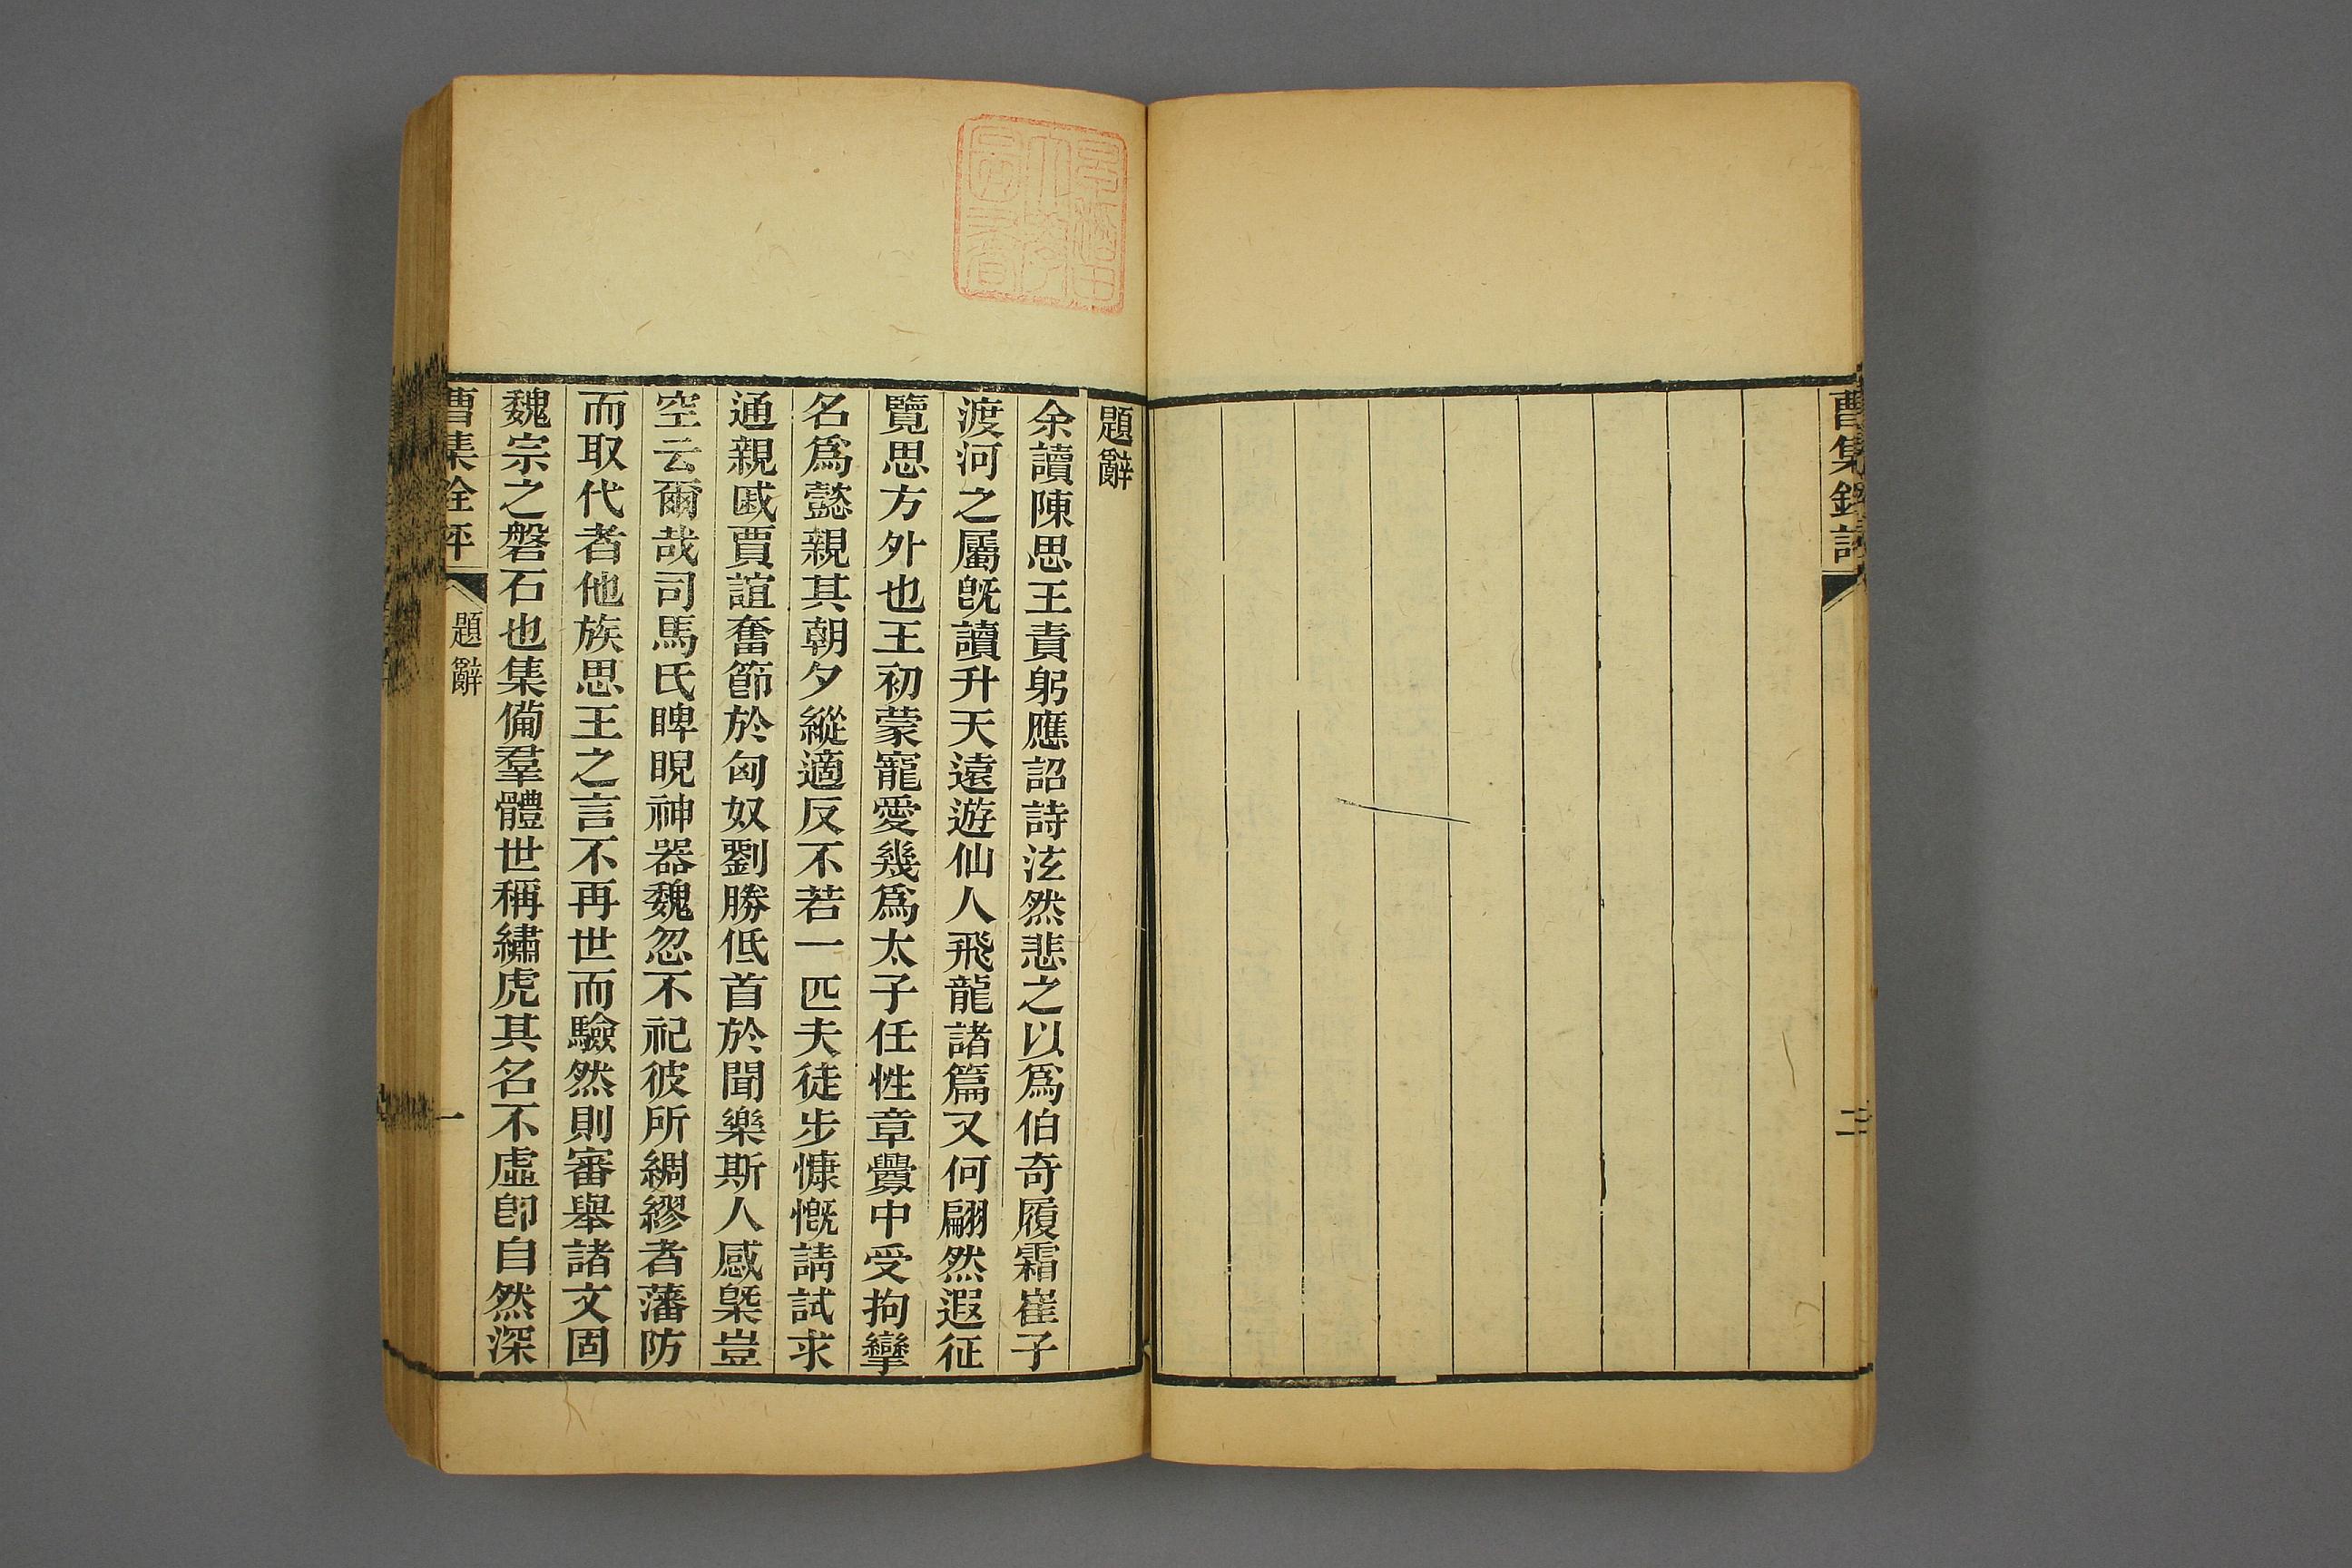 曹集銓評
二
題辭
余讀陳思王責躬應詔詩泫然悲之以爲伯奇履霜崔子
渡河之屬旣讀升天遠遊仙人飛龍諸篇又何翩然遐征
覽思方外也王初蒙寵愛幾爲太子任性章釁中受拘攣
名爲懿親其朝夕縱適反不若一匹夫徒步慷慨請試求
通親戚賈誼奮節於匈奴劉勝低首於聞樂斯人感槩豈
空云爾哉司馬氏睥睨神器魏忽不祀彼所綢繆者藩防
而取代者他族思王之言不再世而驗然則審舉諸文固
魏宗之磐石也集備羣體世稱繡虎其名不虛卽自然深
曹集銓評
題辭
一
早稻田大學圖書